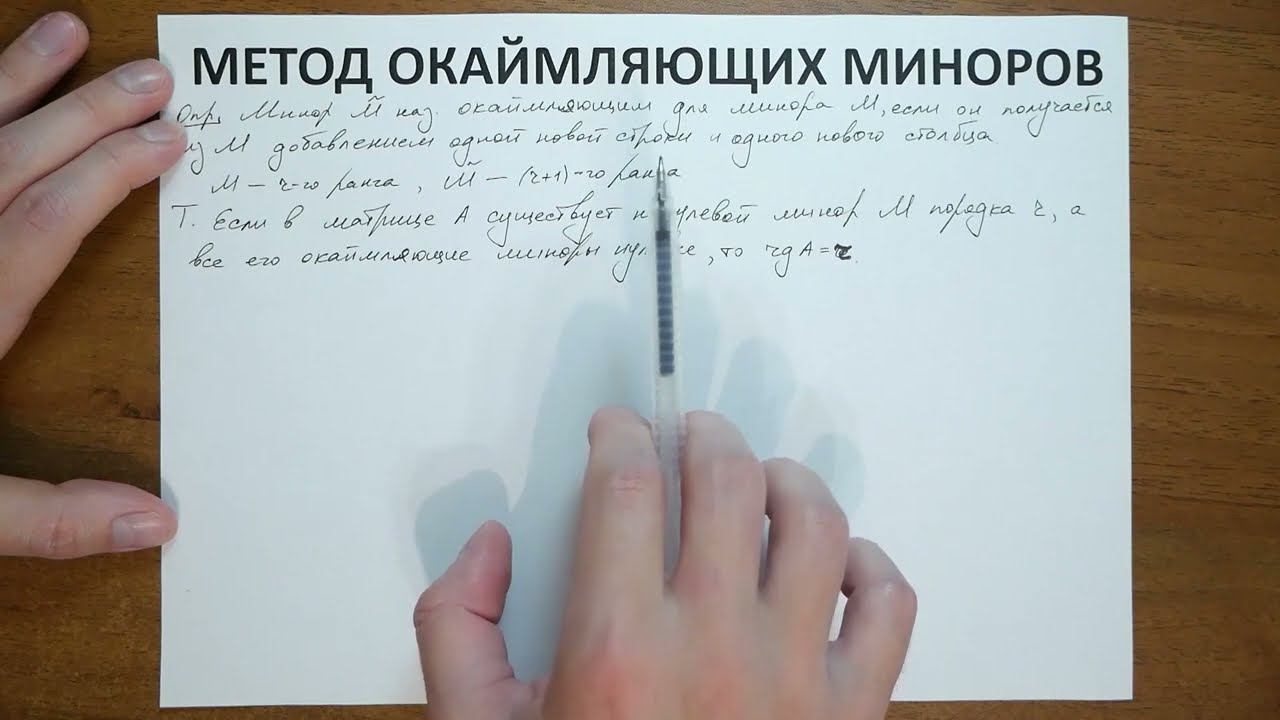 МЕТОД ОКАЙМЛЯЮЩИХ МИНОРОВ
Опр. Минор M̃ наз. окаймляющим для минора M, если он получается
из M добавлением одной новой строки и одного нового столбца.
M – r-го ранга, M̃ – (r+1)-го ранга
Т. Если в матрице A существует минор M порядка r, а
все его окаймляющие миноры, то rg A = r.